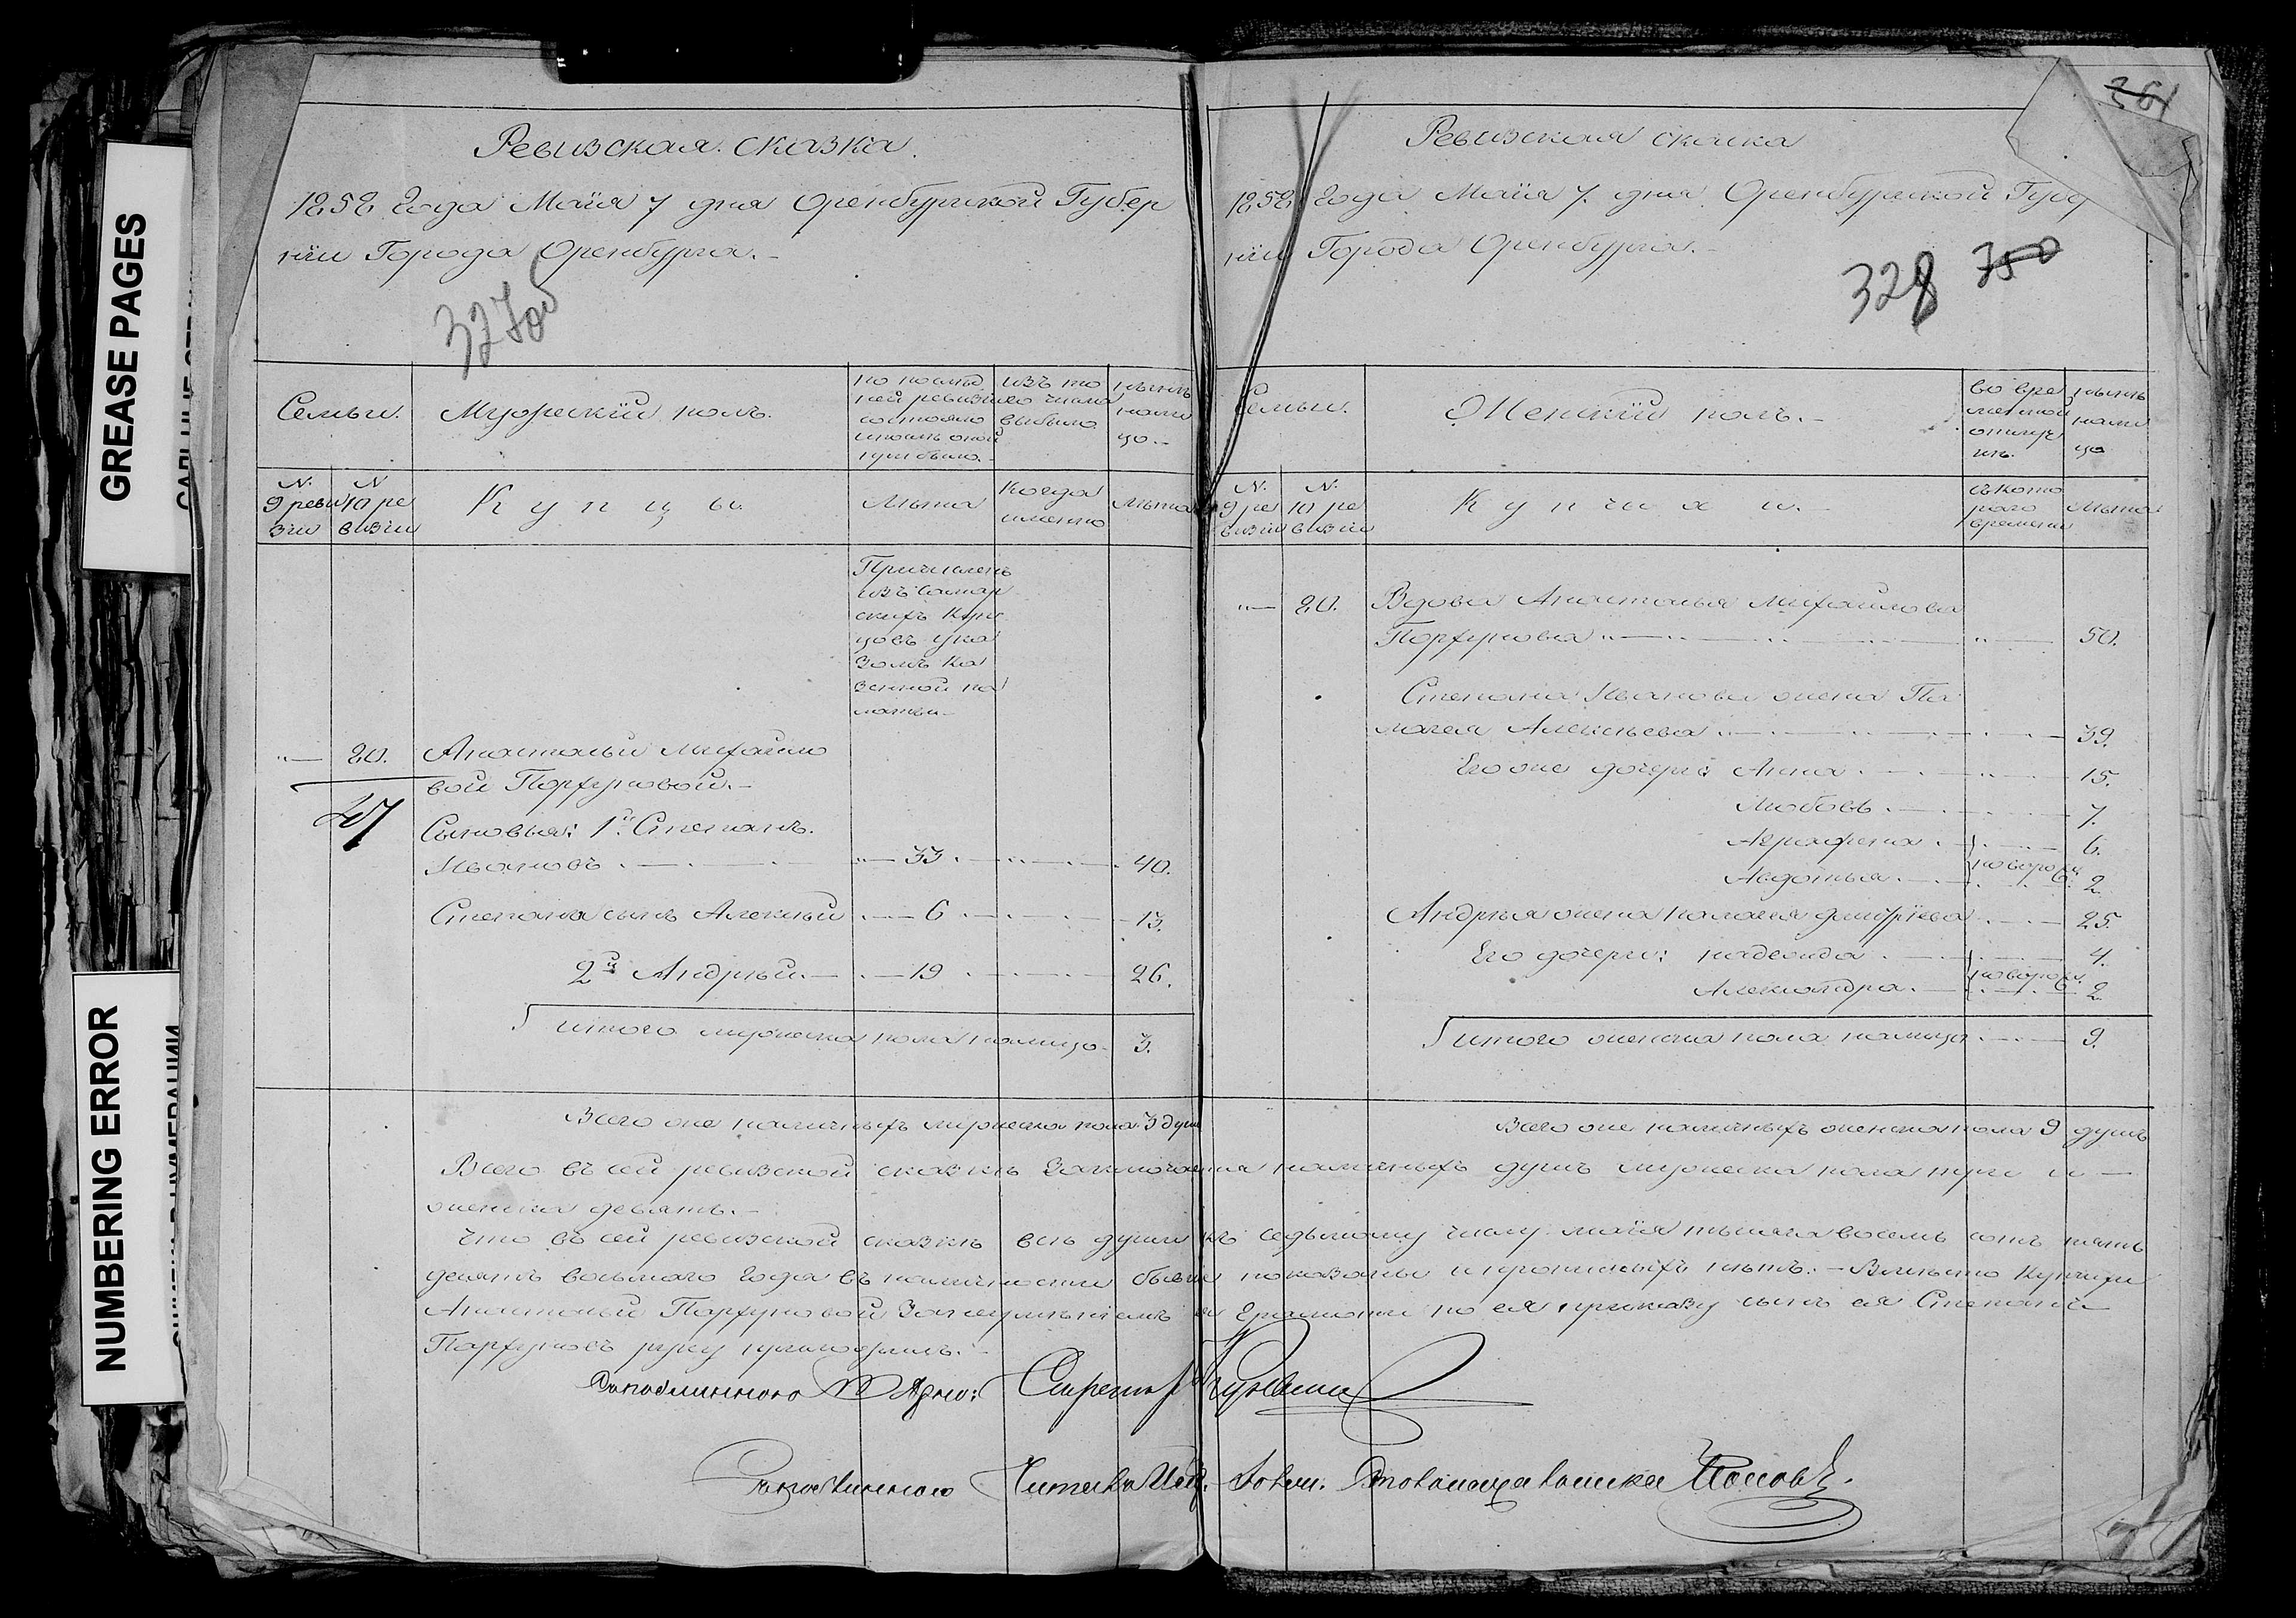 GREASE PAGES
NUMBERING ERROR
Ревизская сказка.
1858 года Маія 7 дня Оренбургской Губер
ніи Города Оренбурга.-
327об
Семьи.
Мужескій полъ.
по послѣд
ней ревизіи
состояло
и послѣ оной
прибыло.
изъ то
го числа
выбыло
нынѣ
нали
цо.-
N.
9 реви
зіи
N
10 ре
визіи
Купцы.
Лѣта
Когда
именно
Лѣта
Причисленъ
изъ Самар
скихъ Куп
цовъ ука
зомъ Ка
зенной па
латы.-
"— 20. Анастасьи Михайло
вой Парфуновой.-
Сыновья: 1й Степанъ.
Ивановъ "— 33 40.
Степана сынъ Алексѣй 6 13.
2й Андрѣй.— 19 26.
итого мужеска пола налицо. 3.
Всего же наличныхъ мужеска пола 3 душ
Ревизская скаска
1858 года Маія 7. дня Оренбургской Губер
ніи Города Оренбурга.-
361
328 750
Семьи.
Женскій полъ.-
во вре
менной
отлуч
кѣ.
нынѣ
нали
цо
N.
9 ре
визіи
N.
10 ре
визіи
Купчихи.-
съ кото
раго
времени
Лѣта
"— 20. Вдова Анастасья Михайлова
Парфунова " 50.
Степана Иванова жена Пе
лагея Алексѣева 39.
Его же дочери: Анна 15.
Любовь 7.
Аграфена 6.
Авдотья 2
новорож
Андрѣя жена Палагея Дмитріева 25.
Его дочери: надежда 4.
Александра. 2
новорож.
итого женска пола налицо 9.
Всего же наличныхъ женска пола 9 душъ
Всего въ сей ревизской сказкѣ заключается наличныхъ душъ мужеска пола три и —
женска девять.-
Что въ сей ревизской сказкѣ всѣ души къ седьмому числу маія тысяча восемь сотъ пять
десятъ восьмаго года въ наличности бывшіе показаны и прописныхъ нѣтъ.- Вмѣсто Купчихи
Анастасьи Парфуновой за неумѣніемъ ея грамоты по ея приказу сынъ ея Степанъ
Парфуновъ руку приложилъ.-
Съ подлиннаго вѣрно:
Съ подлиннаго
Поповъ.